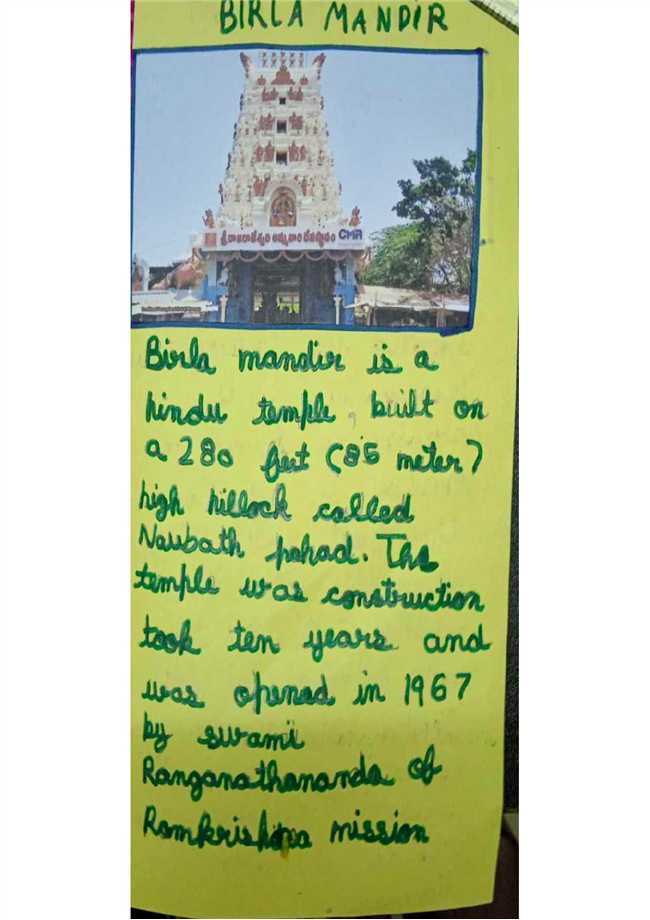 BIRLA MANDIR
శ్రీ రాజరాజేశ్వరి అమ్మవారి దేవస్థానం CMR
Birla mandir is a
hindu temple, built on
a 280 feet (85 meter)
high hillock called
Naubath pahad. The
temple was construction
took ten years and
was opened in 1967
by swami
Ranganathananda of
Ramkrishna mission